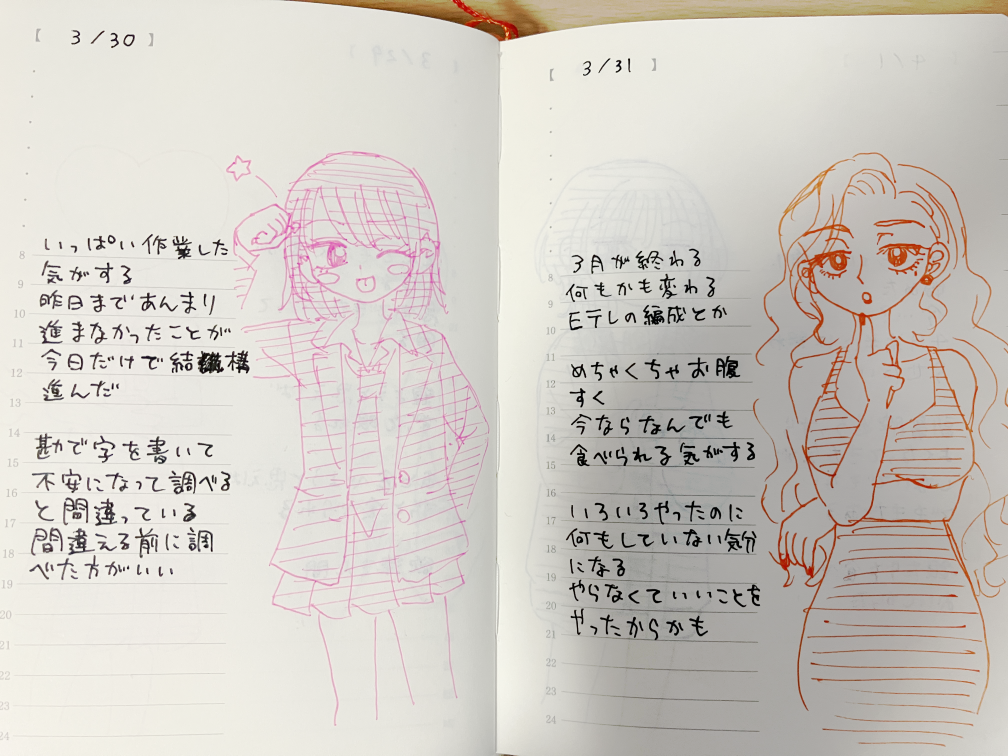 【 3/30 】
いっぱい作業した
気がする
昨日まであんまり
進まなかったことが
今日だけで結構
進んだ
勘で字を書いて
不安になって調べる
と間違っている
間違える前に調
べた方がいい
8
9
10
11
12
13
14
15
16
17
18
19
20
21
22
23
24
【 3/31 】
3月が終わる
何もかも変わる
Eテレの編成とか
めちゃくちゃお腹
すく
今ならなんでも
食べられる気がする
いろいろやったのに
何もしていない気分
になる
やらなくていいことを
やったからかも
8
9
10
11
12
13
14
15
16
17
18
19
20
21
22
23
24